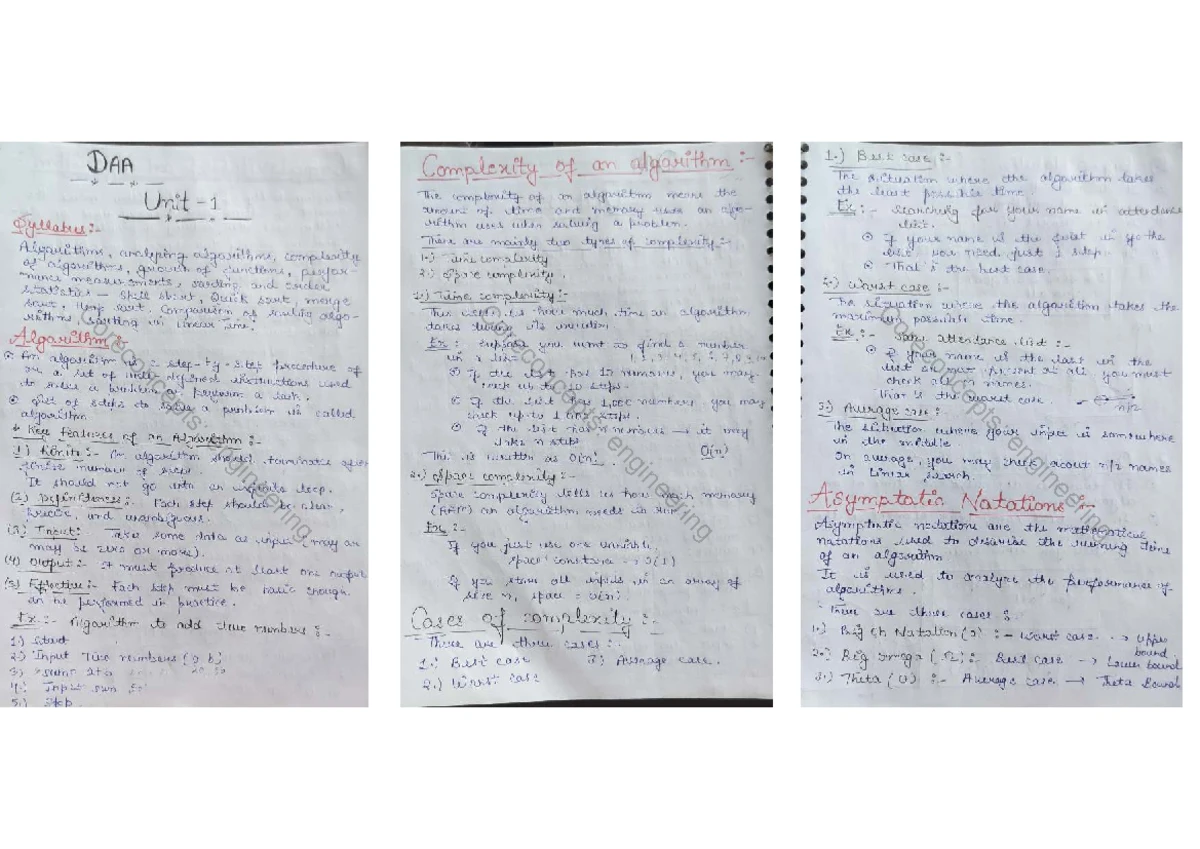 DAA
Unit - 1
Syllabus :-
Algorithms, analyzing algorithms, complexity
of algorithms, growth of functions, perfor-
mance measurements, sorting and order
Statistics - Shell sort, Quick sort, merge
sort, Heap sort, Comparison of sorting algo-
rithms, sorting in linear time.
Algorithm :-
An algorithm is a step-by-step procedure of
or a set of well-defined instructions used
to solve a problem or perform a task.
set of steps to solve a problem is called
algorithm
* Key features of an Algorithm :-
1) Finite :- An algorithm should terminate after
finite number of steps.
It should not go into an infinite loop.
(2) Definiteness :- Each step should be clear,
precise, and unambiguous.
(3) Input :- Take some data as input (may or
may be zero or more).
(4) Output :- It must produce at least one output
(5) Effective :- Each step must be basic enough
to be performed in practice.
Ex :- Algorithm to add two numbers :-
1.) Start
2.) Input Two numbers
3)
4.) sum
5.) Stop
Complexity of an algorithm :-
The complexity of an algorithm means the
amount of time and memory uses an algo-
rithm uses when solving a problem.
There are mainly two types of complexity :-
1.) Time complexity
2.) Space complexity.
1.) Time complexity :-
This is how much time an algorithm
takes during its execution
Ex :- Suppose you want to find a number
in a list
if the list has 10 numbers, you may
check up to 10 steps.
if the list has 1,000 numbers, you may
check up to 1,000 steps.
if the list has n numbers → it may
take n steps
This is written as O(n). O(n)
2.) Space complexity :-
Space complexity tells us how much memory
(RAM) an algorithm needs to run
Ex :-
If you just use one variable,
space constant → O(1)
If you store all inputs in an array of
size n, space = O(n).
Cases of complexity :-
There are three cases :-
1.) Best case 3) Average case.
2.) Worst case
1.) Best case :-
The situation where the algorithm takes
the least possible time.
Ex :- Searching for your name in attendance
list.
if your name is the first in the
list you need just 1 step.
That's the best case.
2.) Worst case :-
The situation where the algorithm takes the
maximum possible time.
Ex :- Same attendance list :-
if your name is the last in the
list or not present at all you must
check all n names.
That is the worst case. n/2
3) Average case :-
The situation where your input is somewhere
in the middle
In average, you may check about n/2 names
in linear search.
Asymptatic Natations :-
Asymptotic notations are the mathematical
notations used to describe the running time
of an algorithm
It is used to analyze the performance of
algorithms.
There are three cases :-
1.) Big Oh Notation (O) :- Worst case → Upper
bound.
2.) Big omega (Ω) :- Best case → Lower bound
3.) Theta (θ) :- Average case → Theta Bound
concepts. engineering
concepts. engineering
concepts. engineering